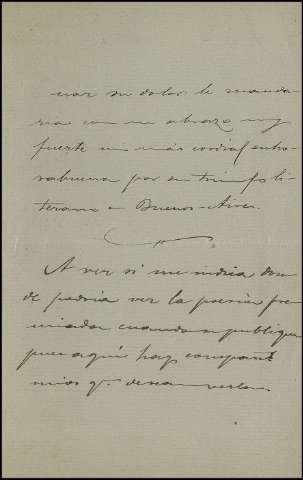 nar su dolor le manda-
ria con un abrazo muy
fuerte mi más cordial enho-
rabuena por su triunfo li-
terario en Buenos-Aires.
A ver si me indica don-
de podria ver la poesia pre-
miada cuando se publique
pues aquí hay
mios q. desean verla.